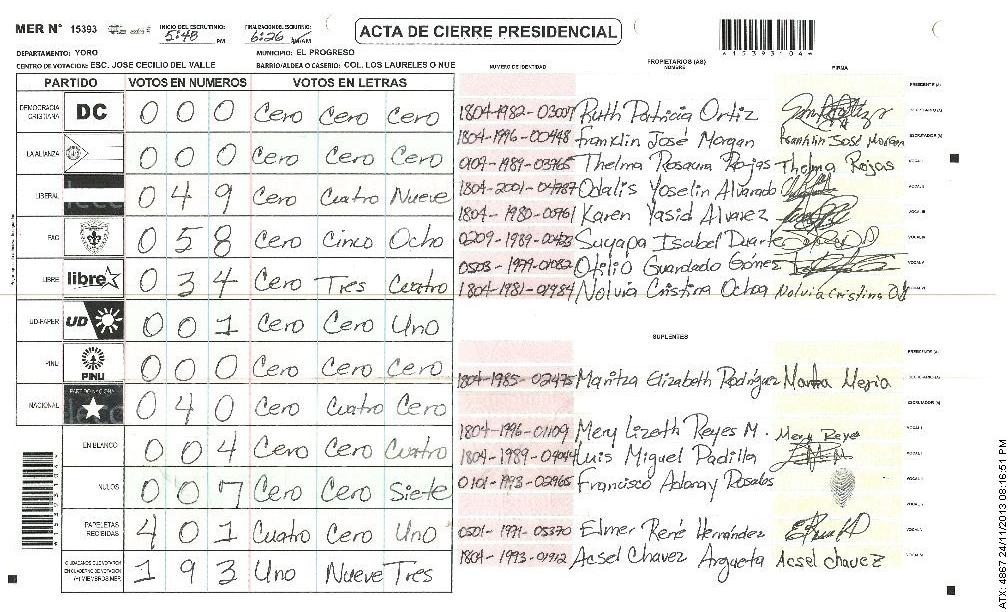 MER N° 15393
INICIO DEL ESCRUTINIO: 5:48 PM
FINALIZACION DEL ESCRUTINIO: 6:26
ACTA DE CIERRE PRESIDENCIAL
*15393104*
DEPARTAMENTO: YORO
MUNICIPIO: EL PROGRESO
CENTRO DE VOTACION: ESC. JOSE CECILIO DEL VALLE
BARRIO/ALDEA O CASERIO: COL. LOS LAURELES O NUE
PARTIDO VOTOS EN NUMEROS VOTOS EN LETRAS
DEMOCRACIA CRISTIANA DC 0 0 0 Cero Cero Cero
LA ALIANZA 0 0 0 Cero Cero Cero
LIBERAL 0 4 9 Cero Cuatro Nueve
PAC 0 5 8 Cero Cinco Ocho
LIBRE libre 0 3 4 Cero Tres Cuatro
UD-FAPER UD 0 0 1 Cero Cero Uno
PINU PINU 0 0 0 Cero Cero Cero
NACIONAL 0 4 0 Cero Cuatro Cero
EN BLANCO 0 0 4 Cero Cero Cuatro
NULOS 0 0 7 Cero Cero Siete
PAPELETAS RECIBIDAS 4 0 1 Cuatro Cero Uno
1 9 3 Uno Nueve Tres
NUMERO DE IDENTIDAD PROPIETARIOS (AS) NOMBRE FIRMA
PRESIDENTE (A)
1804-1982-03007 Ruth Patricia Ortiz SECRETARIO (A)
1804-1996-00448 Franklin José Morgan Franklin José Morgan ESCRUTADOR (A)
0107-1989-03965 Thelma Rosaura Rojas Thelma Rojas VOCAL I
1804-2001-04787 Odalis Yoselin Alvarado VOCAL II
1804-1980-00961 Karen Yasid Alvarez VOCAL III
0209-1989-00423 Suyapa Isabel Duarte VOCAL IV
0503-1979-01082 Otilio Guardado Gómez VOCAL V
1804-1981-01984 Nolvia Cristina Ochoa Nolvia Cristina VOCAL VI
SUPLENTES
PRESIDENTE (A)
1804-1985-02475 Maritza Elizabeth Rodríguez SECRETARIO (A)
ESCRUTADOR (A)
1804-1996-01109 Mery Lizeth Reyes M. Mery Reyes VOCAL I
1804-1989-09044 Luis Miguel Padilla
0101-1993-02965 Francisco Adonay Rosales
0501-1971-05370 Elmer René Hernández
1804-1993-01912 Acsel Chavez Argueta Acsel chavez
ATX: 4867 24/11/2013 08:16:51 PM